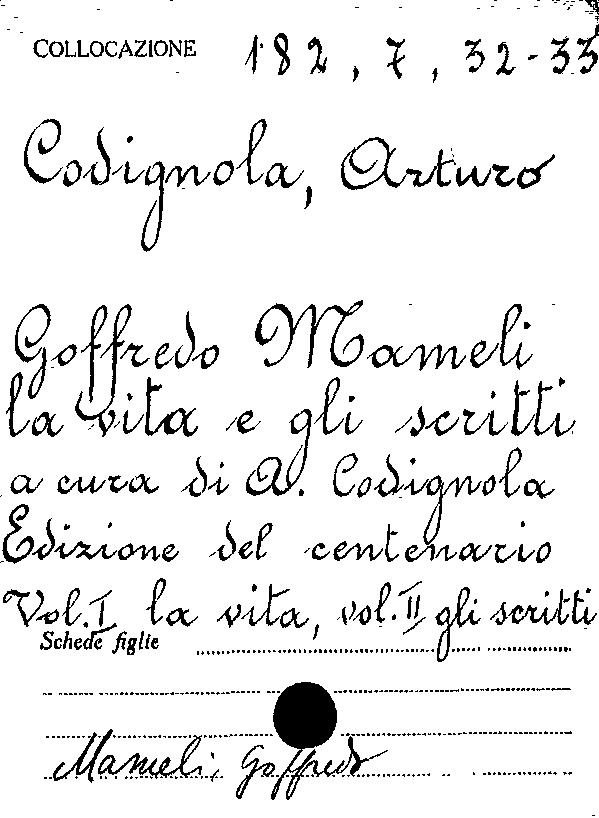 COLLOCAZIONE 182, 7, 32-33
Codignola, Arturo
Goffredo Mameli
la vita e gli scritti
a cura di A. Codignola
Edizione del centenario
Vol. I la vita, vol. II gli scritti
Schede figlie
Mameli, Goffredo